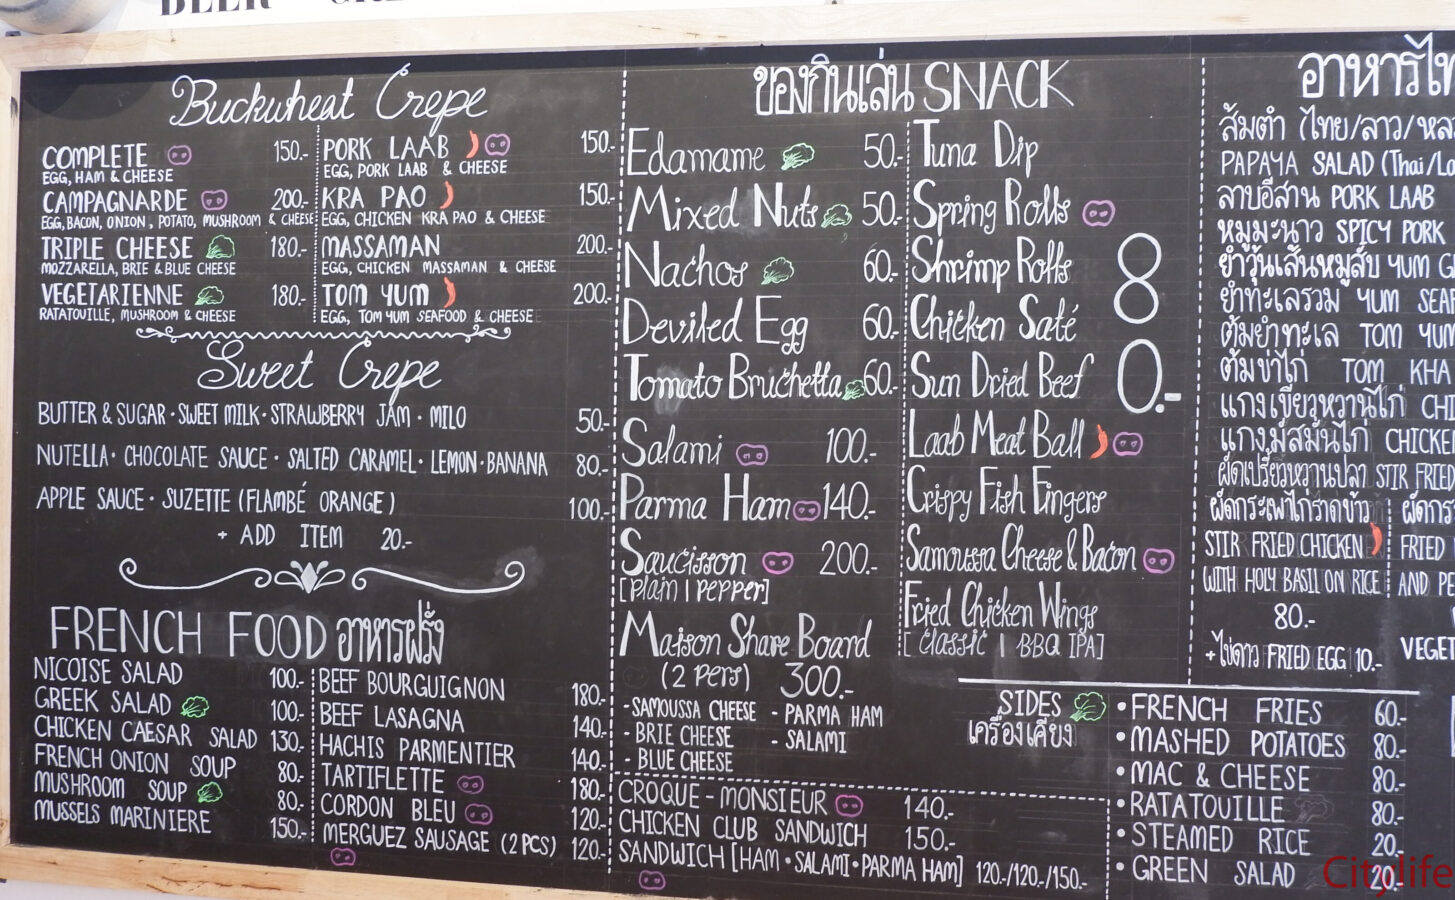 BEER
Buckwheat Crepe
COMPLETE 150.-
EGG, HAM & CHEESE
CAMPAGNARDE 200.-
EGG, BACON, ONION, POTATO, MUSHROOM & CHEESE
TRIPLE CHEESE 180.-
MOZZARELLA, BRIE & BLUE CHEESE
VEGETARIENNE 180.-
RATATOUILLE, MUSHROOM & CHEESE
PORK LAAB 150.-
EGG, PORK LAAB & CHEESE
KRA PAO 150.-
EGG, CHICKEN KRA PAO & CHEESE
MASSAMAN 200.-
EGG, CHICKEN MASSAMAN & CHEESE
TOM YUM 200.-
EGG, TOM YUM SEAFOOD & CHEESE
Sweet Crepe
BUTTER & SUGAR • SWEET MILK • STRAWBERRY JAM • MILO 50.-
NUTELLA • CHOCOLATE SAUCE • SALTED CARAMEL • LEMON • BANANA 80.-
APPLE SAUCE • SUZETTE (FLAMBÉ ORANGE) 100.-
+ ADD ITEM 20.-
FRENCH FOOD อาหารฝรั่ง
NICOISE SALAD 100.-
GREEK SALAD 100.-
CHICKEN CAESAR SALAD 130.-
FRENCH ONION SOUP 80.-
MUSHROOM SOUP 80.-
MUSSELS MARINIERE 150.-
BEEF BOURGUIGNON 180.-
BEEF LASAGNA 140.-
HACHIS PARMENTIER 140.-
TARTIFLETTE 180.-
CORDON BLEU 120.-
MERGUEZ SAUSAGE (2 PCS) 120.-
ของกินเล่น SNACK
Edamame 50.-
Mixed Nuts 50.-
Nachos 60.-
Deviled Egg 60.-
Tomato Bruchetta 60.-
Salami 100.-
Parma Ham 140.-
Saucisson 200.-
[Plain | Pepper]
Maison Share Board
(2 Pers) 300.-
- SAMOUSSA CHEESE - PARMA HAM
- BRIE CHEESE - SALAMI
- BLUE CHEESE
Tuna Dip
Spring Rolls
Shrimp Rolls
Chicken Saté
Sun Dried Beef
Laab Meat Ball
Crispy Fish Fingers
Samoussa Cheese & Bacon
Fried Chicken Wings
[Classic | BBQ IPA]
80.-
CROQUE-MONSIEUR 140.-
CHICKEN CLUB SANDWICH 150.-
SANDWICH [HAM • SALAMI • PARMA HAM] 120/120/150.-
อาหารไท
ส้มตำ (ไทย/ลาว/หล
PAPAYA SALAD (Thai/La
ลาบอีสาน PORK LAAB
หมูมะนาว SPICY PORK
ยำวุ้นเส้นหมูสับ YUM G
ยำทะเลรวม YUM SEAF
ต้มยำทะเล TOM YUM
ต้มข่าไก่ TOM KHA
แกงเขียวหวานไก่ CHI
แกงมัสมั่นไก่ CHICKE
ผัดเปรี้ยวหวานปลา STIR FRIED
ผัดกระเพาไก่ราดข้าว
STIR FRIED CHICKEN
WITH HOLY BASIL ON RICE
80.-
+ ไข่ดาว FRIED EGG 10.-
ผัดกร
FRIED
AND PE
VEGET
SIDES
เครื่องเคียง
• FRENCH FRIES 60.-
• MASHED POTATOES 80.-
• MAC & CHEESE 80.-
• RATATOUILLE 80.-
• STEAMED RICE 20.-
• GREEN SALAD 20.-
Citylife